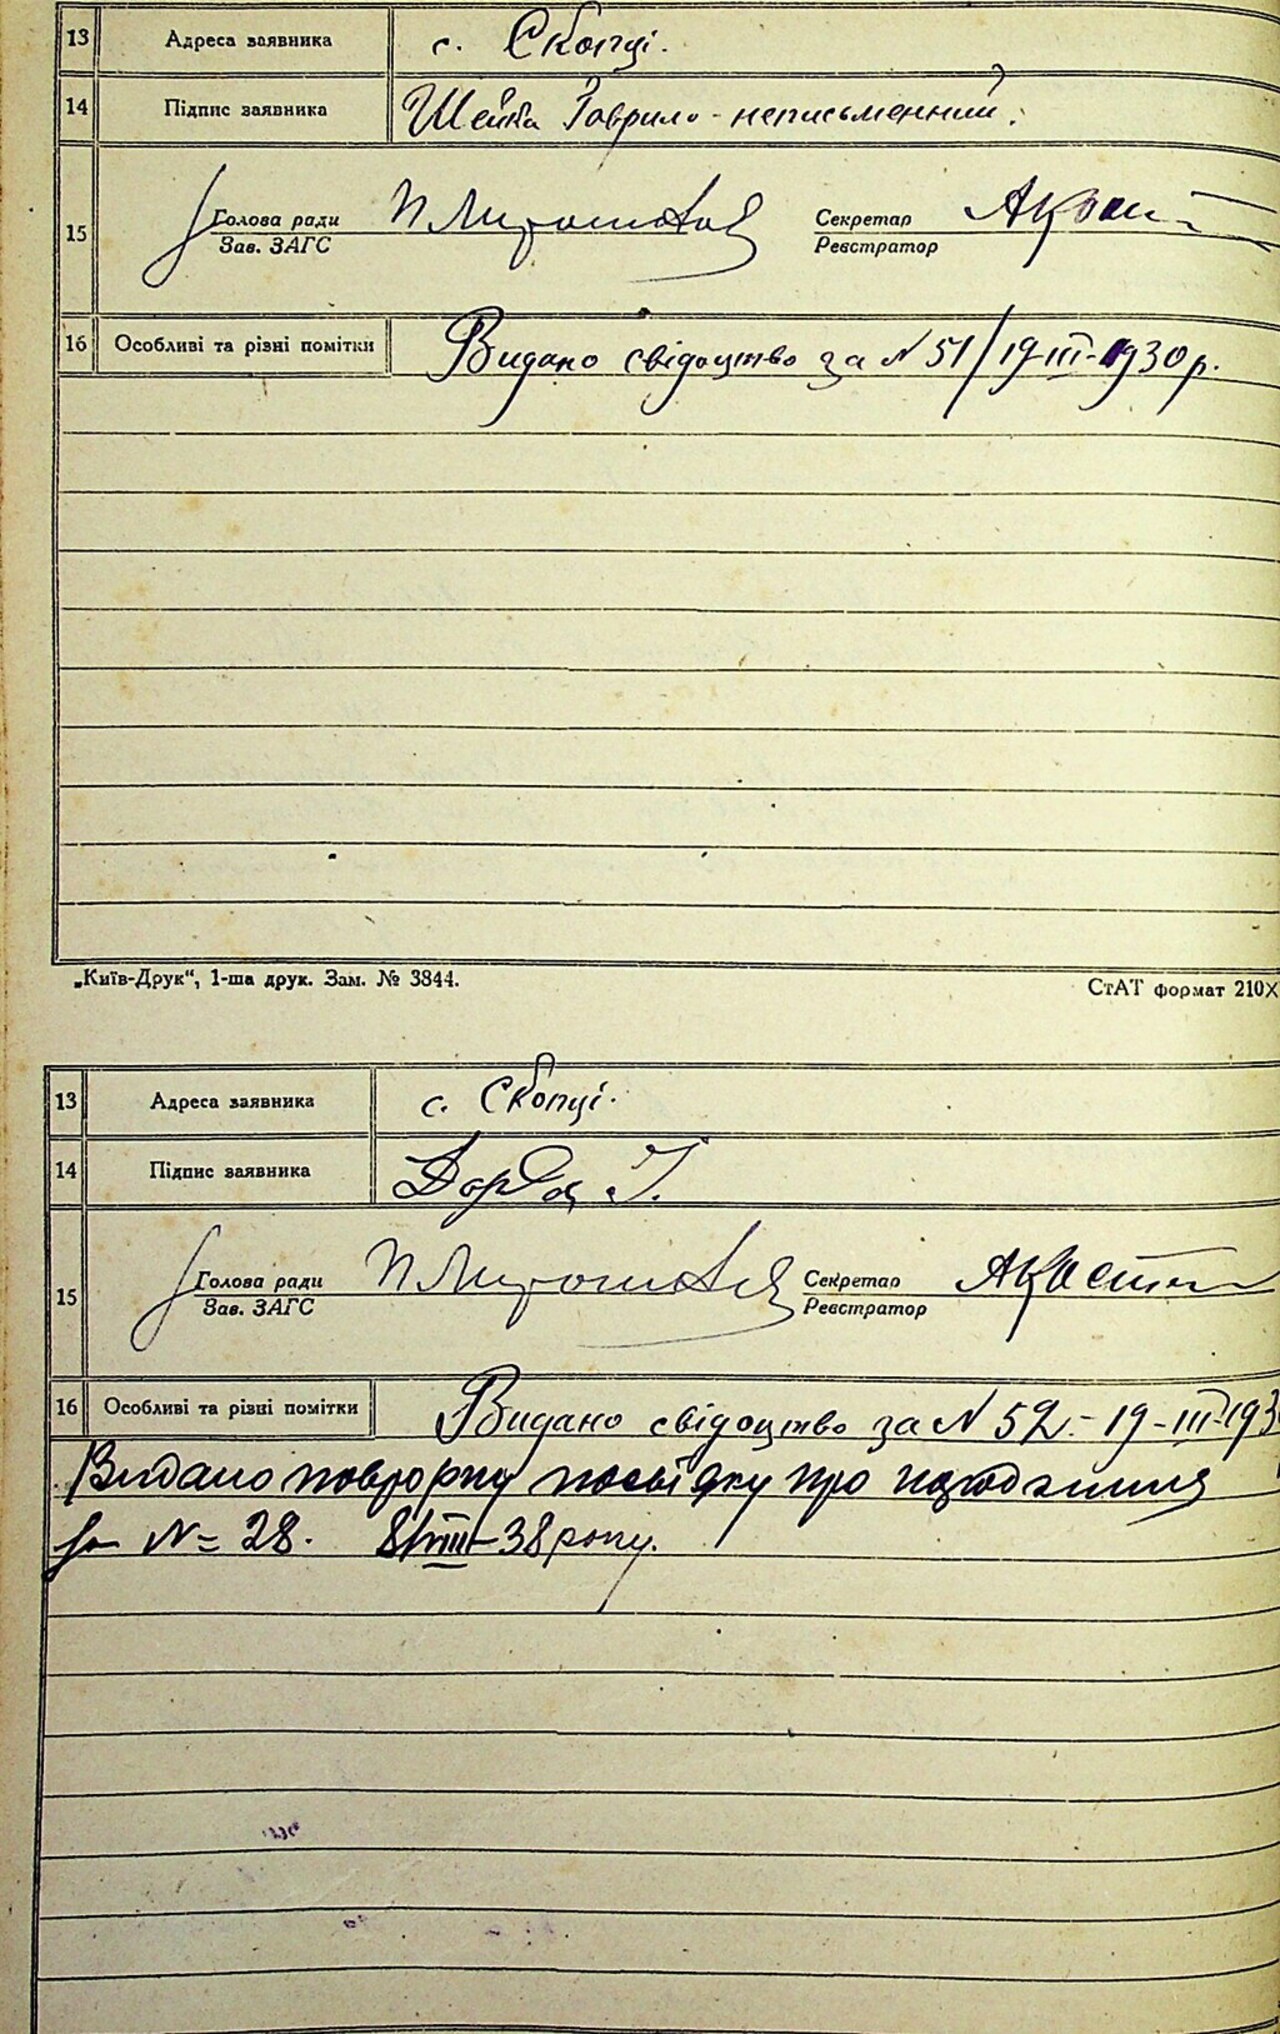 13 Адреса заявника с. Скопці.
14 Підпис заявника Шейка Гаврило - неписьменний.
15 Голова ради Секретар
Зав. ЗАГС Реєстратор
16 Особливі та різні помітки Видано свідоцтво за N 51/19-III-1930 р.
„Київ-Друк“, 1-ша друк. Зам. № 3844.
СтАТ формат 210X
13 Адреса заявника с. Скопці.
14 Підпис заявника
15 Голова ради Секретар
Зав. ЗАГС Реєстратор
16 Особливі та різні помітки Видано свідоцтво за N 52.- 19-III-193
Видано повторну посвідку про народження
за N= 28. 8/VIII-38 року.